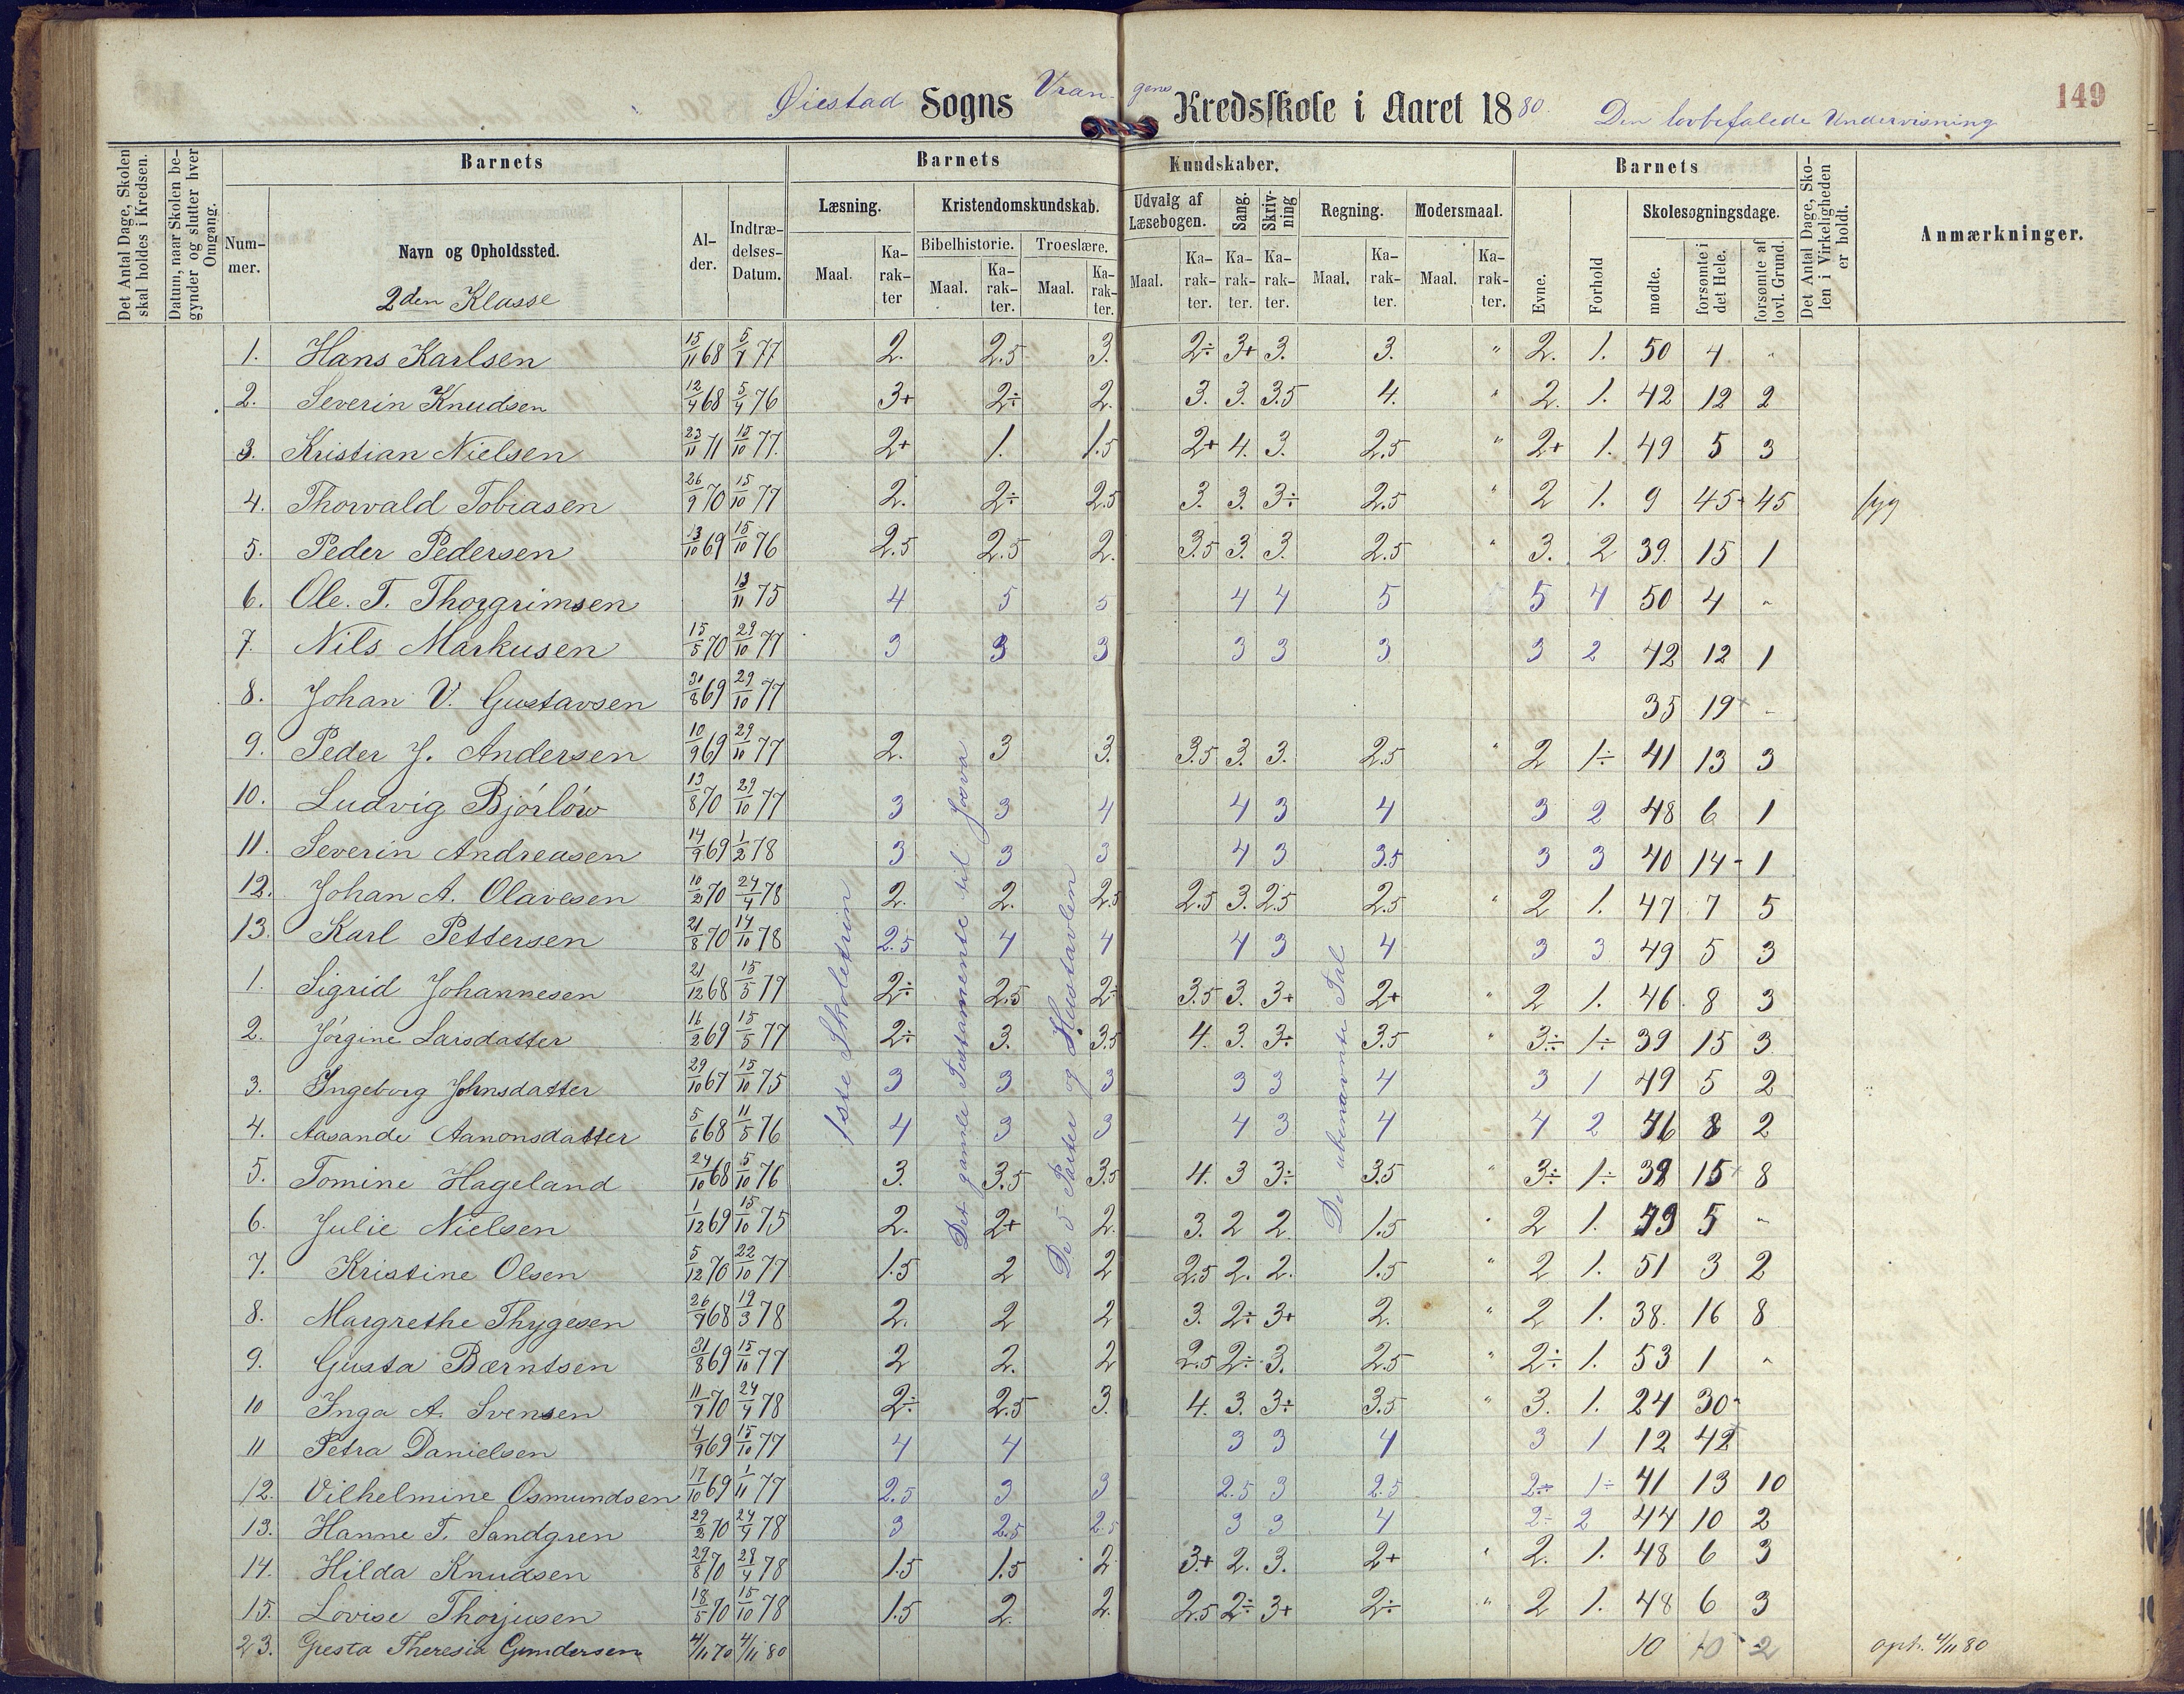 149
Øiestad Sogns Vrangens Kredsskole i Aaret 1880. Den lovbefalede Undervisning
Det Antal Dage, Skolen skal holdes i Kredsen.
Datum, naar Skolen begynder og slutter hver Omgang.
Barnets
Nummer.
Navn og Opholdssted.
2den Klasse
Alder.
Indtrædelses-Datum.
Barnets Kundskaber.
Læsning.
Maal.
Karakter
Kristendomskundskab.
Bibelhistorie.
Maal.
Karakter.
Troeslære.
Maal.
Karakter.
Udvalg af Læsebogen.
Maal.
Karakter.
Sang.
Karakter.
Skrivning
Karakter.
Regning.
Maal.
Karakter.
Modersmaal.
Maal.
Karakter.
Barnets
Evne.
Forhold
Skolesøgningsdage.
mødte.
forsømte i det Hele.
forsømte af lovl. Grund.
Det Antal Dage, Skolen i Virkeligheden er holdt.
Anmærkninger.
1. Hans Karlsen 15/11 68 5/7 77 2. 2.5 3. 2÷ 3+ 3. 3. " 2. 1. 50 4 "
2. Severin Knudsen 12/4 68 5/4 76 3+ 2÷ 2. 3. 3. 3.5 4. " 2. 1. 42 12 2
3. Kristian Nielsen 23/11 71 15/10 77. 2+ 1. 1.5 2+ 4. 3. 2.5 " 2+ 1. 49 5 3
4. Thorvald Tobiasen 26/9 70 15/10 77 2. 2÷ 2.5 3. 3. 3÷ 2.5 " 2 1. 9 45 45 syg
5. Peder Pedersen 13/10 69 15/10 76 2.5 2.5 2. 3.5 3. 3. 2.5 " 3. 2 39. 15 1
6. Ole. T. Thorgrimsen 13/11 75 4 5 5 4 4 5 5 4 50 4 "
7. Nils Markusen 15/5 70 29/10 77 3 3 3 3 3 3 3 2 42 12 1
8. Johan V. Gustavsen 31/8 69 29/10 77 35 19 "
9. Peder J. Andersen 10/9 69 29/10 77 2. 3 3. 3.5 3. 3. 2.5 " 2 1÷ 41 13 3
10. Ludvig Bjórlów 13/8 70 29/10 77 3 3 4 4 3 4 3 2 48 6 1
11. Severin Andreasen 14/9 69 1/2 78 3 3 3 4 3 3.5 3 3 40 14 1
12. Johan A. Olavesen 10/2 70 24/4 78 2. 2. 2.5 2.5 3. 2.5 2.5 " 2 1. 47 7 5
13. Karl Pettersen 21/8 70 14/10 78 2.5 4 4 4 3 4 3 3 49 5 3
1. Sigrid Johannesen 21/12 68 15/5 77 2÷ 2.5 2÷ 3.5 3. 3+ 2+ " 2 1. 46. 8 3
2. Jórgine Larsdatter 16/2 69 15/5 77 2÷ 3. 3.5 4. 3. 3÷ 3.5 " 3÷ 1÷ 39 15 3
3. Ingeborg Johnsdatter 29/10 67 15/10 75 3 3 3 3 3 4 3 1 49 5 2
4. Aasande Aanonsdatter 5/6 68 11/5 76 4 3 3 4 3 4 4 2 46 8 2
5. Tomine Hageland 24/10 68 5/10 76 3. 3.5 3.5 4. 3 3÷ 3.5 " 3÷ 1÷ 39 15 8
6. Julie Nielsen 1/12 69 15/10 75 2. 2+ 2. 3. 2 2. 1.5 " 2 1. 49 5 "
7. Kristine Olsen 5/12 70 22/10 77 1.5 2 2 2.5 2. 2. 1.5 " 2 1. 51 3 2
8. Margrethe Thygesen 26/7 68 19/3 78 2. 2 2 3. 2÷ 3+ 2. " 2 1. 38. 16 8
9. Gusta Bærntsen 31/8 69 15/10 77 2 2. 2 2.5 2÷ 3. 2.5 " 2÷ 1. 53 1 "
10 Inga A. Svensen 11/7 70 24/4 78 2÷ 2.5 3. 4. 3. 3÷ 3.5 " 3. 1. 24 30
11 Petra Danielsen 4/9 69 15/10 77 4 4 3 3 4 3 1 12 42
12. Vilhelmine Osmundsen 17/10 69 1/11 77 2.5 3 3 2.5 3 2.5 2÷ 1÷ 41 13 10
13. Hanne T. Sandgren 29/2 70 24/4 78 3 2.5 2.5 3 3 4 2÷ 2 44 10 2
14. Hilda Knudsen 29/8 70 28/4 78 1.5 1.5 2 3+ 2. 3. 2+ " 2. 1. 48 6 3
15. Lovise Thorjusen 18/5 70 15/10 78 1.5 2. 2. 2.5 2÷ 3+ 2÷ " 2 1. 48 6 3
23. Gusta Theresia Gundersen 4/11 70 4/11 80 10 10 2 opt. 4/11 80
1ste Skoletrin
Det gamle Testamente til Josva
De 5 Parter og Hustavlen
De ubenævnte Tal